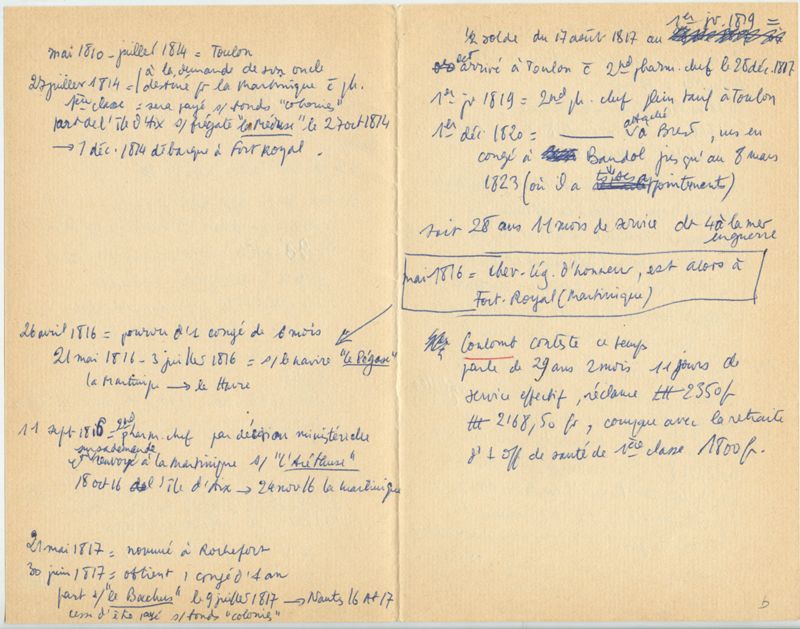 mai 1810 - juillet 1814 = Toulon
27 juillet 1814 = à la demande de son oncle
destiné pr la Martinique c̄ ph.
1ère classe = sera payé s/ fonds "colonies"
part de l'île d'Aix s/ frégate "la Méduse" le 27 oct 1814
→ 7 déc. 1814 débarque à Fort Royal.
26 avril 1816 = pourvu d'1 congé de 6 mois
21 mai 1816 - 3 juillet 1816 = s/ le navire "le Pégase"
la Martinique → le Havre
11 sept 1816 = 2nd pharm. chef par décision ministérielle
sur sa demande
et renvoyé à la Martinique s/ "l'Aréthuse"
18 oct 16 de l'île d'Aix → 24 nov 16 la Martinique
21 mai 1817 = nommé à Rochefort
30 juin 1817 = obtient 1 congé d'1 an
part s/ "le Bacchus" le 9 juillet 1817 → Nantes 16 At 17
cesse d'être payé s/ fonds "colonies"
1er jv. 1819 =
1/2 solde du 17 août 1817 au
est arrivé à Toulon c̄ 2nd pharm. chef le 28 déc. 1817
1er jv 1819 = 2nd ph. chef plein tarif à Toulon
1er déc. 1820 = —— attaché à Brest, mis en
congé à Bandol jusqu'au 8 mars
1823 (où il a ts ses appointements)
soit 28 ans 11 mois de service dt 4 à la mer
en guerre
mai 1816 = chev. lég. d'honneur, est alors à
Fort-Royal (Martinique)
Coulomb conteste ce temps
parle de 29 ans 2 mois 11 jours de
service effectif, réclame 2350 f
2168,50 fr, comque avec la retraite
d'1 off de santé de 1ère classe 1800 fr.
b